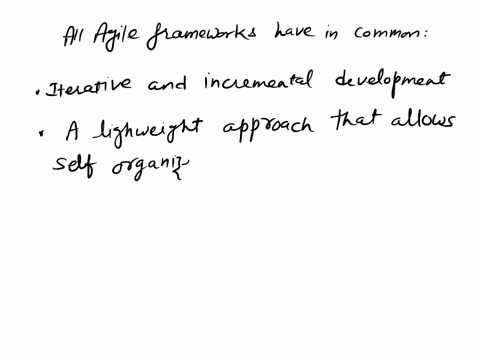 All Agile frameworks have in common:
. Iterative and incremental development
. A lighweight approach that allows
self organiz